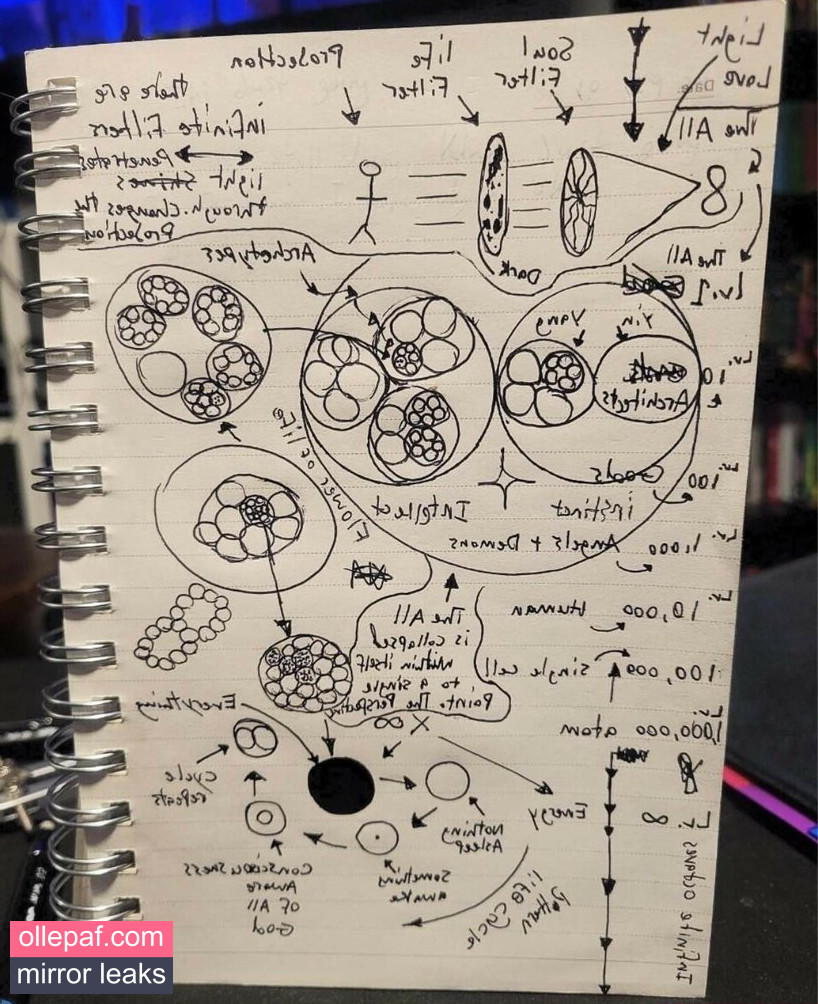 Light
Love
The All
Soul
Filter
Life
Filter
Projection
There are
infinite Filters
Light Penetrates
through. changes the
Projection
8
Dark
The All
Lv. 1
Yin
Yang
Archetypes
Lv. 10
Architects
Lv. 100
Gods
instinct
Intellect
Flower of life
Lv. 1,000
Angels + Demons
Lv. 10,000 Human
100,000 single cell
Lv. 1,000,000 atom
The All
is collapsed
within itself
to a single
Point. The Perspective
X ∞
Everything
cycle
repeats
Energy
Nothing
Asleep
Something
awake
Consciousness
Aware
OF All
God
life cycle
Pattern
Lv. 8
Infinite octaves
ollepaf.com
mirror leaks